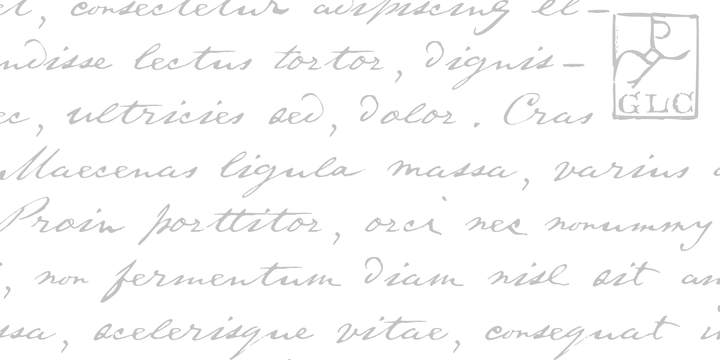 et, consectetur adipiscing el-
ndisse lectus tortor, dignis-
GLC
ec, ultricies sed, dolor. Cras
Maecenas ligula massa, varius a
Proin porttitor, orci nec nonummy
, non fermentum diam nisl sit am
ssa, scelerisque vitae, consequat i